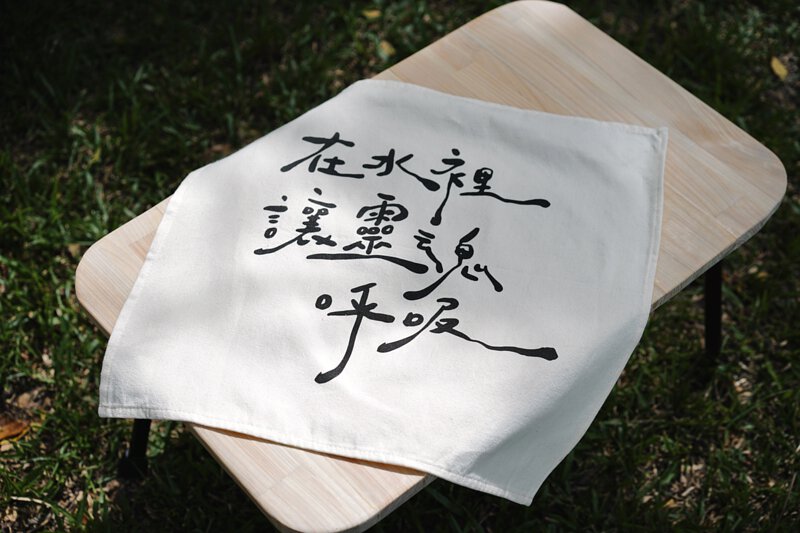 在水裡
讓靈魂
呼吸